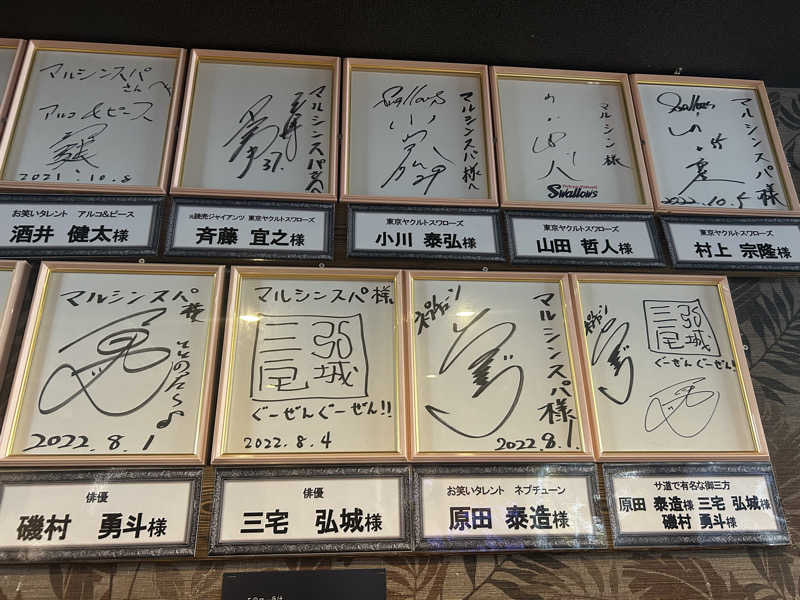 マルシンスパ
さんへ
アルコ&ピース
2021.10.8
お笑いタレント アルコ&ピース
酒井 健太様
マルシンスパさんへ
37.
元読売ジャイアンツ 東京ヤクルトスワローズ
斉藤 宜之様
Swallows
マルシンスパ様へ
29
東京ヤクルトスワローズ
小川 泰弘様
マルシン様
Swallows
東京ヤクルトスワローズ
山田 哲人様
Swallows
マルシンスパ様
2022.10.5
東京ヤクルトスワローズ
村上 宗隆様
マルシンスパ様
ととのた〜♪
2022.8.1
俳優
磯村 勇斗様
マルシンスパ様
三宅
弘城
ぐーぜんぐーぜん!!
2022.8.4
俳優
三宅 弘城様
ネプチューン
マルシンスパ様
2022.8.1.
お笑いタレント ネプチューン
原田 泰造様
三宅
弘城
ぐーぜんぐーぜん!!
サ道で有名な御三方
原田 泰造様 三宅 弘城様
磯村 勇斗様